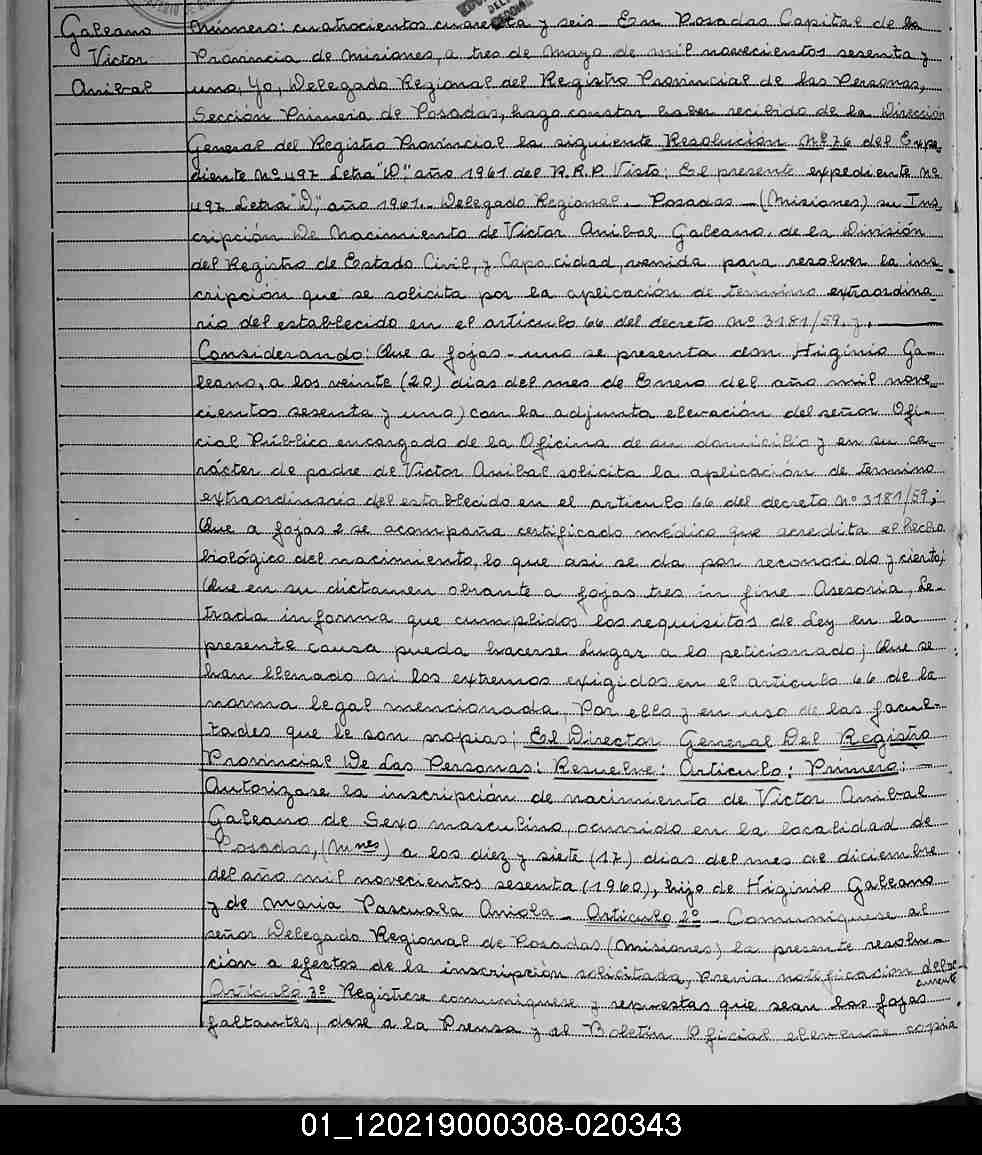 Galeano
Victor
Anibal
Número: cuatrocientos cuarenta y seis - En Posadas Capital de la
Provincia de Misiones, a tres de Mayo de mil novecientos sesenta y
uno, Yo, Delegado Regional del Registro Provincial de las Personas,
Sección Primera de Posadas, hago constar haber recibido de la Dirección
General del Registro Provincial la siguiente Resolución Nº 76 del Expe-
diente Nº 497 Letra "D", año 1961 del R.R.P. Visto; El presente expediente Nº
497 Letra "D", año 1961.- Delegado Regional.- Posadas - (Misiones) su Ins-
cripción De Nacimiento de Victor Anibal Galeano, de la División
del Registro de Estado Civil, y Capacidad, venida para resolver la ins-
cripción que se solicita por la aplicación de termino extraordina-
rio del establecido en el artículo 66 del decreto Nº 3181/59, y,
Considerando: Que a fojas - uno se presenta don Higinio Ga-
leano, a los veinte (20) dias del mes de Enero del año mil nove-
cientos sesenta y uno) con la adjunta elevación del señor Ofi-
cial Público encargado de la Oficina de su domicilio y en su ca-
rácter de padre de Victor Anibal solicita la aplicación de termino
extraordinario del establecido en el articulo 66 del decreto Nº 3181/59;
Que a fojas 2 se acompaña certificado médico que acredita el hecho
biológico del nacimiento, lo que asi se da por reconocido y cierto;
Que en su dictamen obrante a fojas tres in fine - Asesoria, Le-
trada informa que cumplidos los requisitos de Ley en la
presente causa pueda hacerse lugar a lo peticionado; Que se
han llenado asi los extremos exigidos en el articulo 66 de la
norma legal mencionada, Por ello y en uso de las facul-
tades que le son propias; El Director General Del Registro
Provincial De Las Personas: Resuelve: Articulo: Primero: -
Autorizase la inscripción de nacimiento de Victor Anibal
Galeano de Sexo masculino, ocurrido en la localidad de
Posadas, (Mnes) a los diez y siete (17) dias del mes de diciembre
del año mil novecientos sesenta (1960), hijo de Higinio Galeano
y de Maria Pascuala Aniola - Articulo 2º - Comuniquese al
señor Delegado Regional de Posadas (Misiones) la presente resolu-
ción a efectos de la inscripción solicitada, Previa notificacion del
Articulo 3º Registrese comuniquese y repuestas que sean las fojas
faltantes, dese a la Prensa y al Boletín Oficial elevense copia
01_120219000308-020343